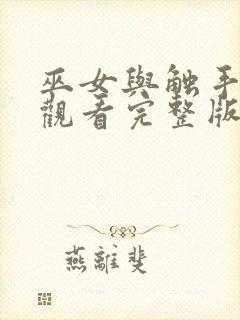 巫女與触手
觀看完整版
燕離斐